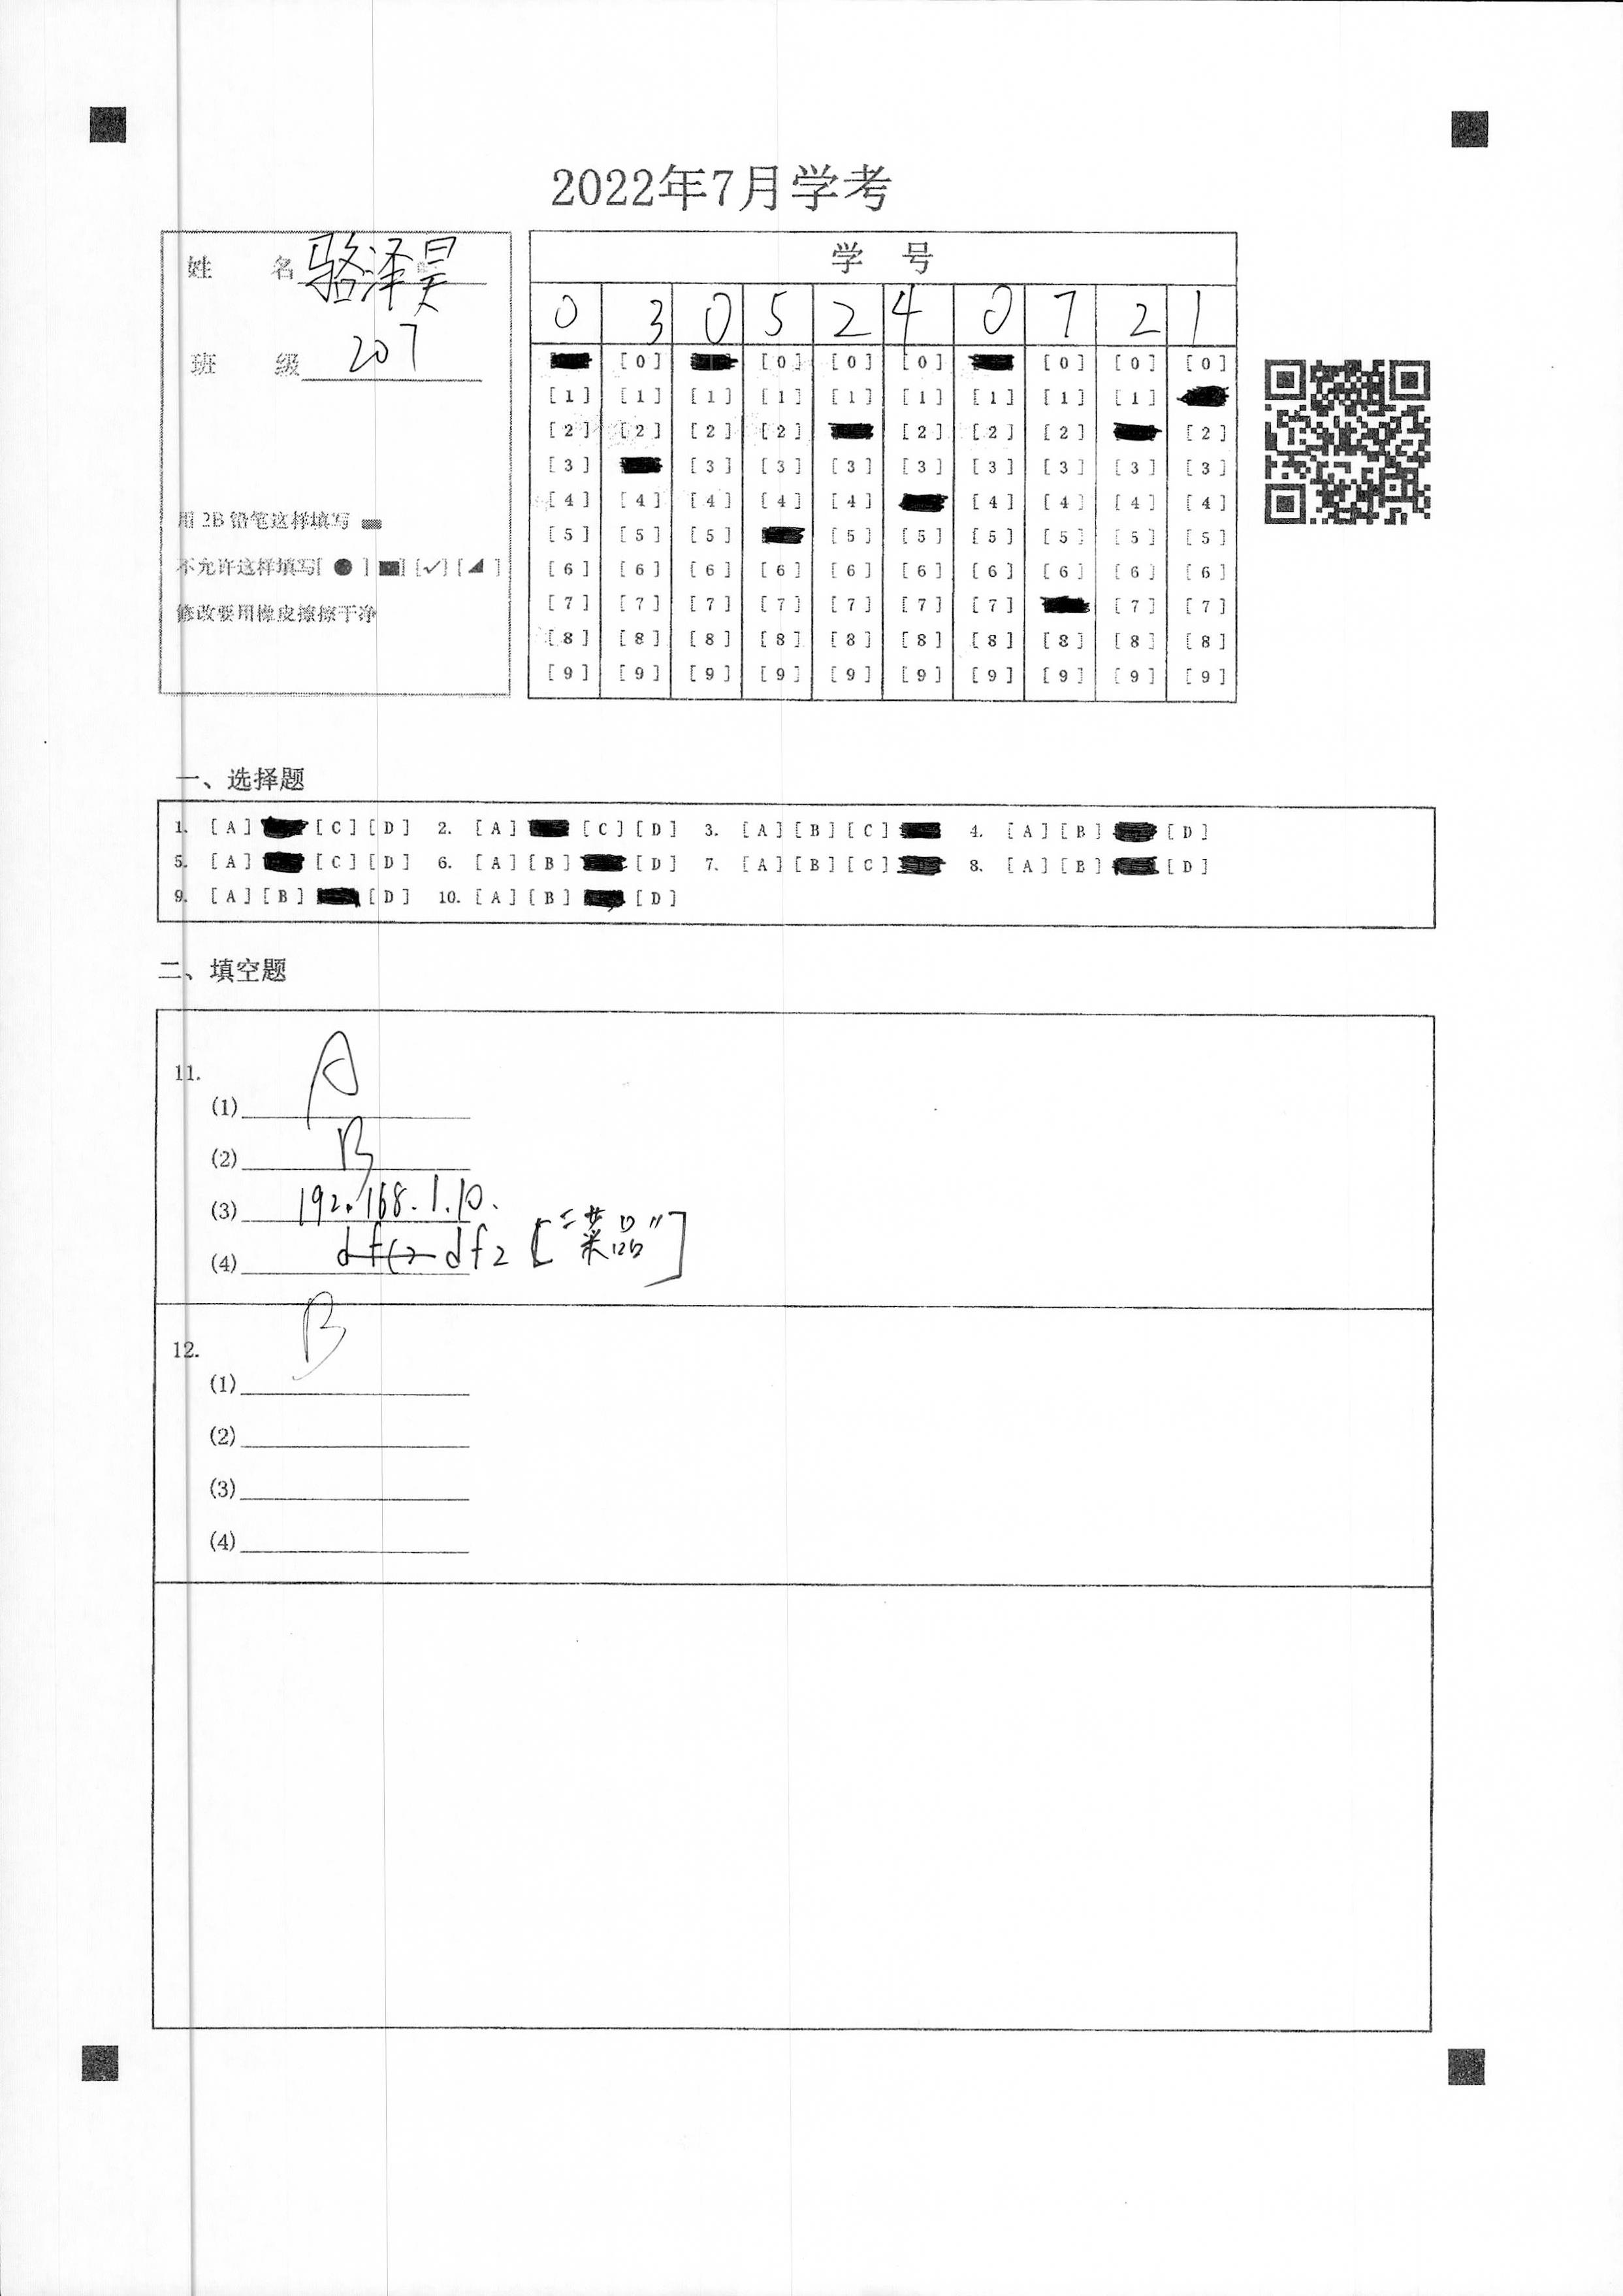 2022年7月学考
姓 名 骆泽昊
班 级 207
用 2B 铅笔这样填写
不允许这样填写[ ● ] [■] [✓] [◢ ]
修改要用橡皮擦擦干净
学 号
0 3 0 5 2 4 0 7 2 1
[0] [0] [0] [0] [0] [0]
[1] [1] [1] [1] [1] [1] [1] [1] [1]
[2] [2] [2] [2] [2] [2] [2] [2]
[3] [3] [3] [3] [3] [3] [3] [3] [3]
[4] [4] [4] [4] [4] [4] [4] [4] [4]
[5] [5] [5] [5] [5] [5] [5] [5] [5]
[6] [6] [6] [6] [6] [6] [6] [6] [6] [6]
[7] [7] [7] [7] [7] [7] [7] [7] [7]
[8] [8] [8] [8] [8] [8] [8] [8] [8] [8]
[9] [9] [9] [9] [9] [9] [9] [9] [9] [9]
一、选择题
1. [A] [C] [D] 2. [A] [C] [D] 3. [A] [B] [C] 4. [A] [B] [D]
5. [A] [C] [D] 6. [A] [B] [D] 7. [A] [B] [C] 8. [A] [B] [D]
9. [A] [B] [D] 10. [A] [B] [D]
二、填空题
11.
(1) A
(2) B
(3) 192.168.1.10.
(4) df2["菜品"]
12.
B
(1)
(2)
(3)
(4)